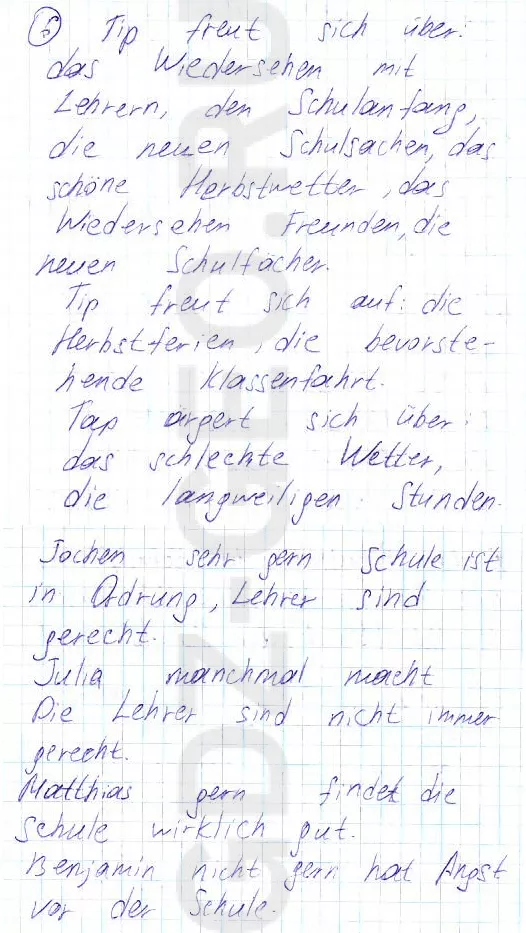 6 Tip freut sich über:
das Wiedersehen mit
Lehrern, den Schulanfang,
die neuen Schulsachen, das
schöne Herbstwetter, das
Wiedersehen Freunden, die
neuen Schulfächer.
Tip freut sich auf: die
Herbstferien, die bevorste-
hende Klassenfahrt.
Tap ärgert sich über:
das schlechte Wetter,
die langweiligen Stunden.
Jochen sehr gern Schule ist
in Ordrung, Lehrer sind
gerecht.
Julia manchmal macht
Die Lehrer sind nicht immer
gerecht.
Matthias gern findet die
Schule wirklich gut.
Benjamin nicht gern hat Angst
vor der Schule.
GDZ-GEO.RU